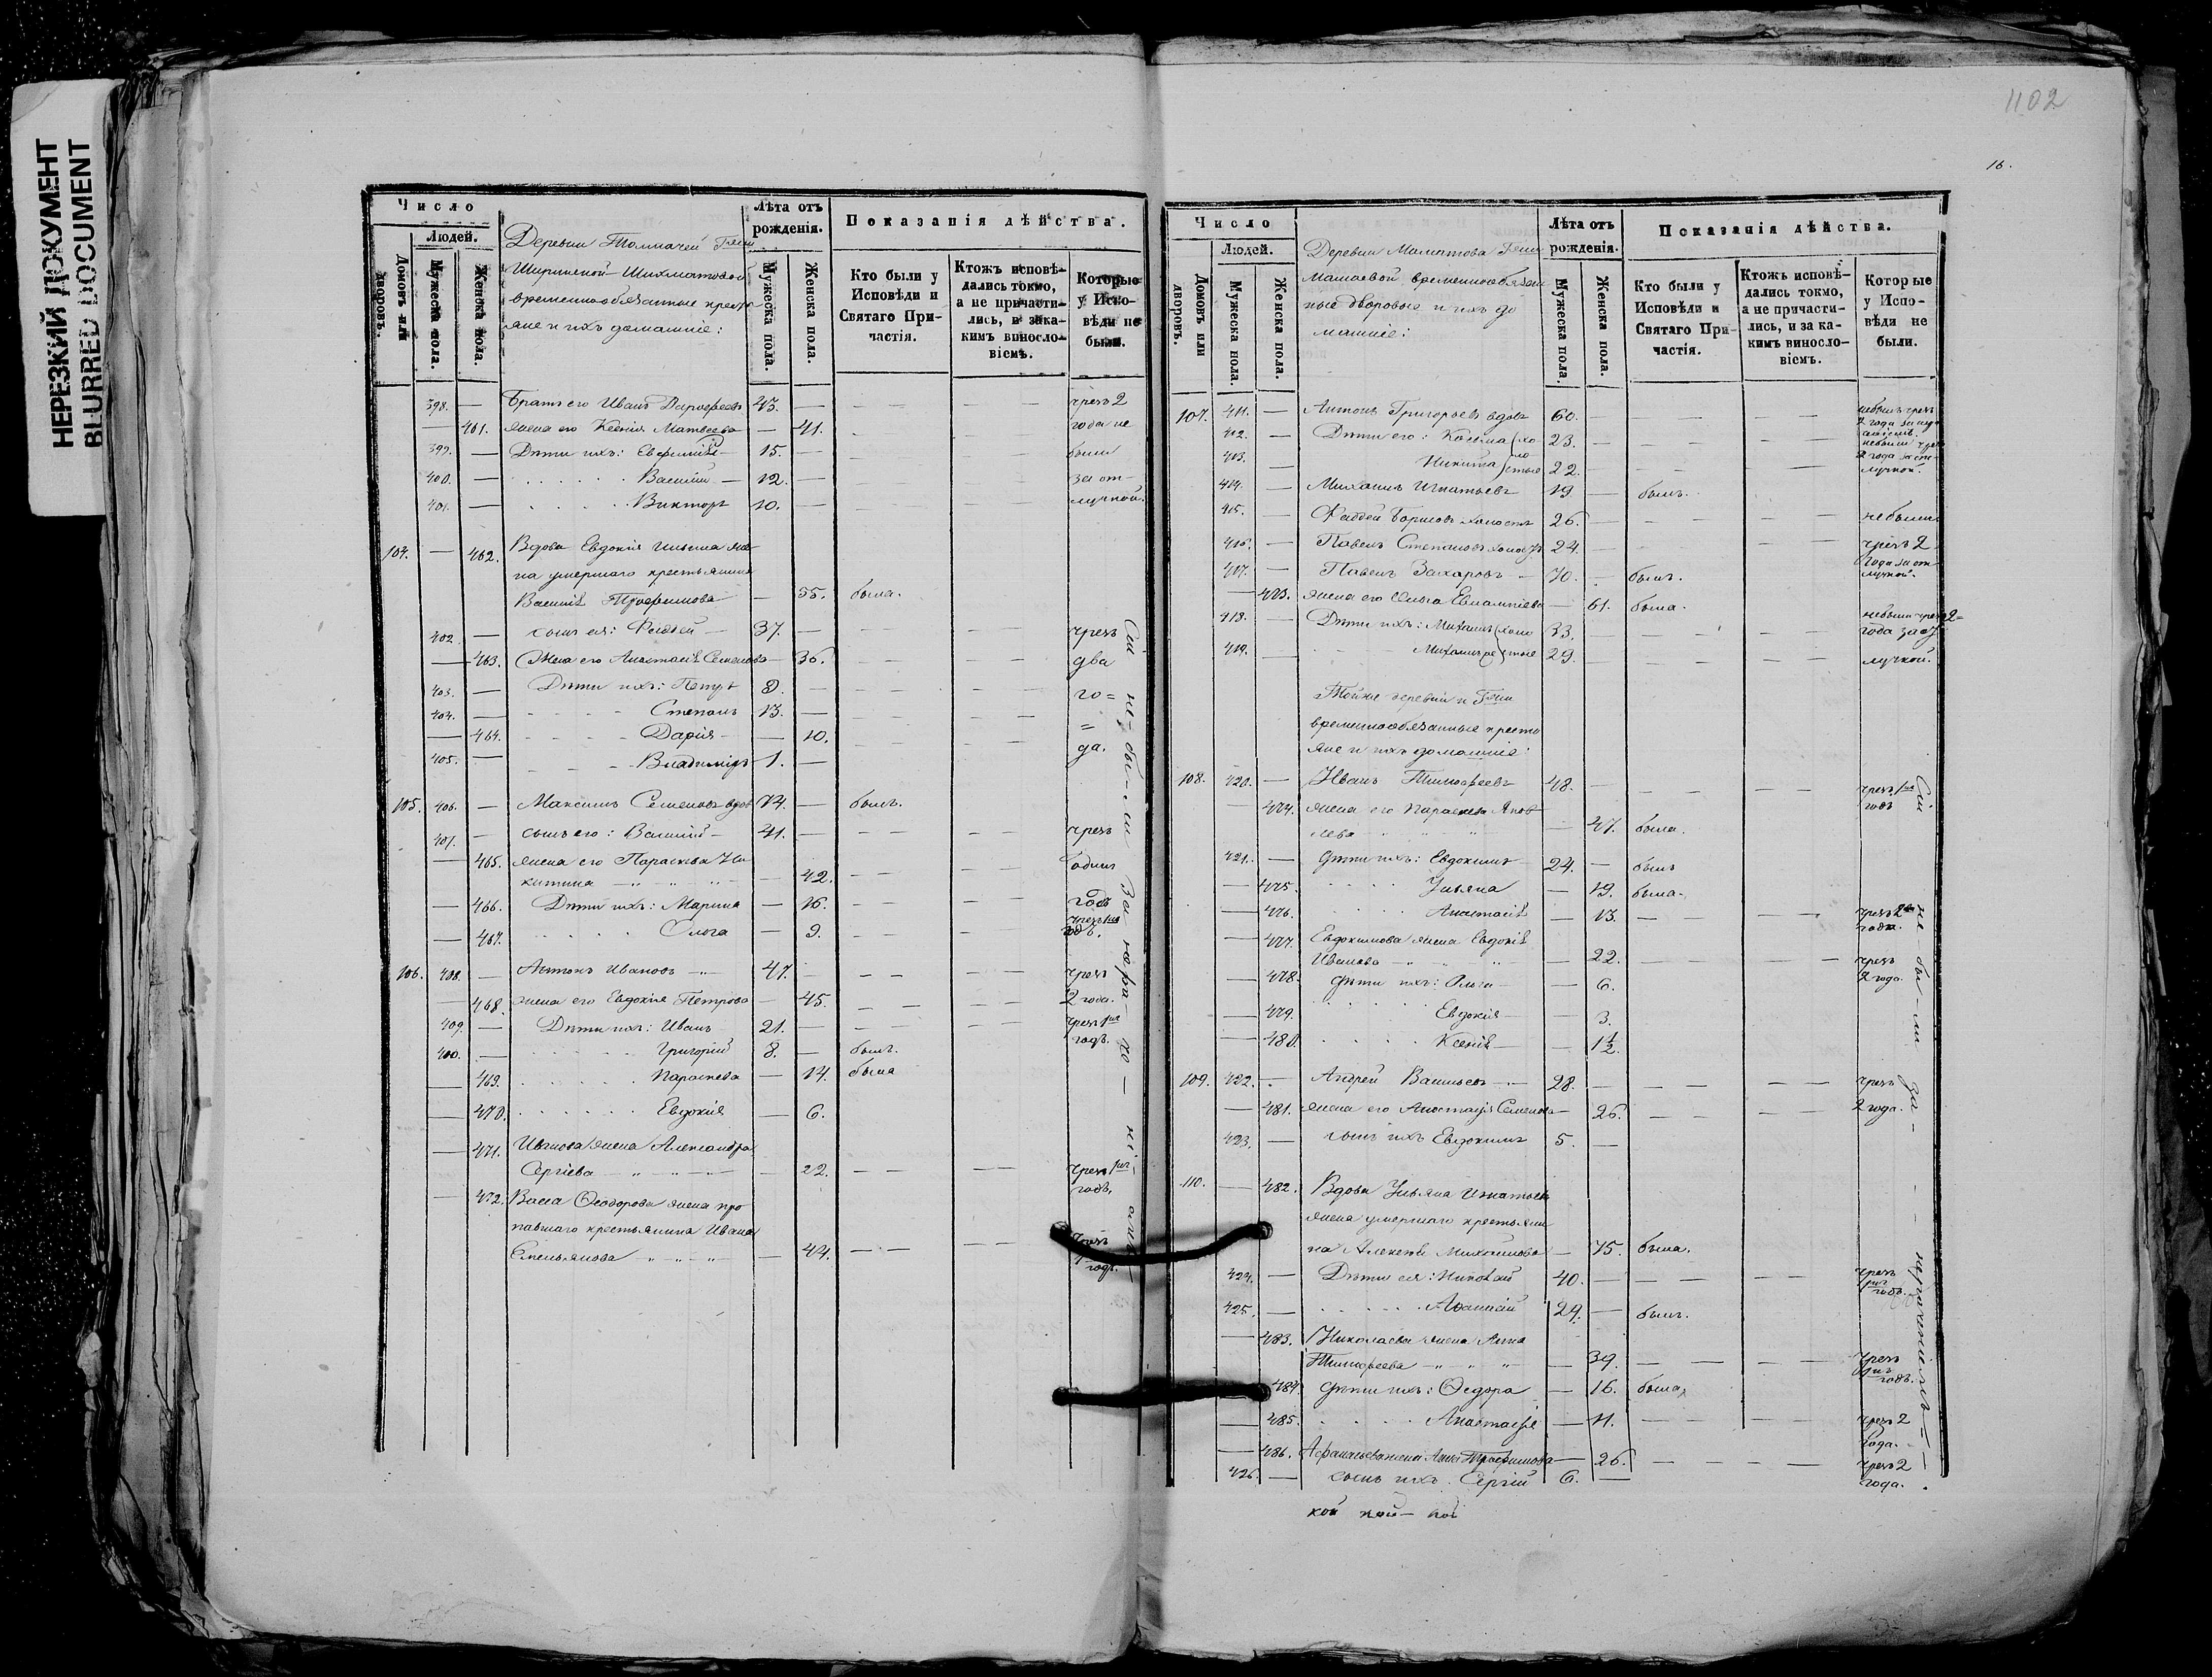 НЕРЕЗКИЙ ДОКУМЕНТ
BLURRED DOCUMENT
1102
16.
Число
Людей.
Домовъ или дворовъ.
Мужеска пола.
Женска пола.
Деревни Толмачей Гжи
Ширинской-Шихматовой
временнообязанные кресть
яне и ихъ домашніе:
Лѣта отъ рожденія.
Мужеска пола.
Женска пола.
Показанія дѣйства.
Кто были у Исповѣди и Святаго Причастія.
Ктожъ исповѣдались токмо, а не причастились, и за какимъ винословіемъ.
Которые у Исповѣди не были.
398. — Братъ его Иванъ Дорофеевъ 43. — — — чрезъ 2
— 461. жена его Ксенія Матвеева — 41. года не
399. — Дѣти ихъ: Евфимій 15. — были
400. — Василій — 12. — за от-
401. — Викторъ 10. — лучкой.
104. — 462. Вдова Евдокія Ильина же-
на умершаго крестьянина
Василія Трофимова — 55. была.
402. — сынъ ея: Фаддей — 37. — чрезъ
— 463. Жена его Анастасія Семенова — 36. два
403. — Дѣти ихъ: Петръ — го=
404. — Степанъ 13. — =
— 464. Дарія — 10. да.
405. — Владиміръ 1. —
105. 406. — Максимъ Семеновъ вдов 74. — былъ.
407. — сынъ его: Василій — 41. — чрезъ
— 465. жена его Параскева Ни
китина — 42. одинъ
— 466. Дѣти ихъ: Марина — 16. годъ
— 467. Ольга — 9. чрезъ годъ.
106. 408. — Антонъ Ивановъ 47. — чрезъ
— 468. жена его Евдокія Петрова — 45. 2 года.
409. — Дѣти ихъ: Иванъ 21. — чрезъ годъ.
410. — Григорій 8. — былъ.
— 469. Параскева — 14. была
— 470. Евдокія — 6.
— 471. Иванова жена Александра
Сергіева — 22. чрезъ годъ.
— 472. Васса Ѳеодорова жена про
павшаго крестьянина Ивана
Емельянова — 44. чрезъ годъ.
Сіи не-бы-ли за
Число
Людей.
Домовъ или дворовъ.
Мужеска пола.
Женска пола.
Деревни Маматова Гжи
Мамаевой временнообязан
ные дворовые и ихъ до
машніе:
Лѣта отъ рожденія.
Мужеска пола.
Женска пола.
Показанія дѣйства.
Кто были у Исповѣди и Святаго Причастія.
Ктожъ исповѣдались токмо, а не причастились, и за какимъ винословіемъ.
Которые у Исповѣди не были.
107. 411. — Антонъ Григорьевъ вдовъ 60. — не былъ чрезъ 2 года
412. — Дѣти его: Козьма (хо- 23. — не были чрезъ
413. — Никита ло стые 22. — 2 года за от-лучкой.
414. — Михаилъ Игнатьевъ 19 — былъ.
415. — Фаддей Борисовъ холостъ 26. — не были
416. — Павелъ Степановъ холостъ 24. — чрезъ 2
417. — Павелъ Захаровъ — 70. — былъ. года за от
лучкой.
— 473. жена его Ольга Евлампіева — 61. была.
418. — Дѣти ихъ: Михаилъ (холо 33. — не были чрезъ 2=
года за от
419. — Михаилъ стые 29. — лучкой.
Тойже деревни и Гжи
временнообязанные кресть
яне и ихъ домашніе:
108. 420. — Иванъ Тимофеевъ 48. — чрезъ годъ
— 474. жена его Параскева Яков
лева — 47. была.
421. — Дѣти ихъ: Евдокимъ 24. — былъ
— 475. Ульяна — 19. была.
— 476. Анастасія — 13. — чрезъ 2 года.
— 477. Евдокимова жена Евдокія
Иванова — 22. — чрезъ
2 года.
— 478. Дѣти ихъ: Ольга — 6.
— 479. Евдокія — 3.
— 480. Ксенія — 1½.
109. 422. — Андрей Васильевъ — 28. — чрезъ
— 481. жена его Анастасія Семенова — 26. 2 года.
423. — сынъ ихъ Евдокимъ 5. —
110. — 482. Вдова Ульяна Игнатьева
жена умершаго крестьяни
на Алексѣя Михайлова — 75. была.
424. — Дѣти ея: Николай 40. — чрезъ годъ.
425. — Аѳанасій 29. — былъ.
— 483. Николаева жена Анна
Тимофеева — 39. — чрезъ годъ.
— 484. Дѣти ихъ: Ѳедора — 16. была,
— 485. Анастасія — 11. — чрезъ 2
года.
— 486. Афанасьева жена Анна Трофимова — 26. — чрезъ 2
426. — сынъ ихъ Сергій 6. — года.
Сіи не-бы-ли за-